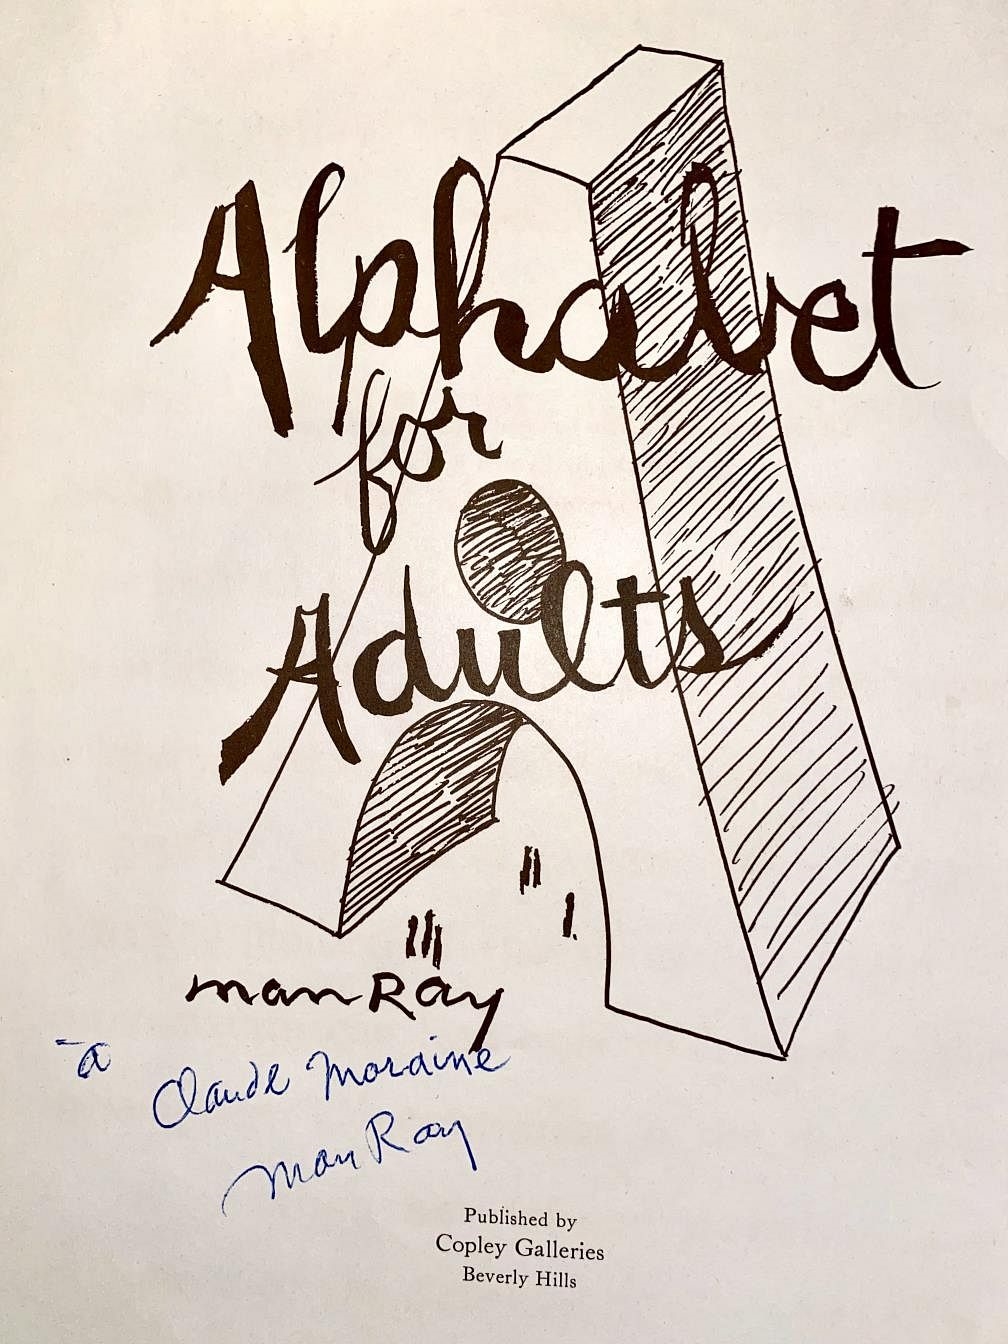 Alphabet
for
Adults
man Ray
à
Claude Moraine
Man Ray
Published by
Copley Galleries
Beverly Hills